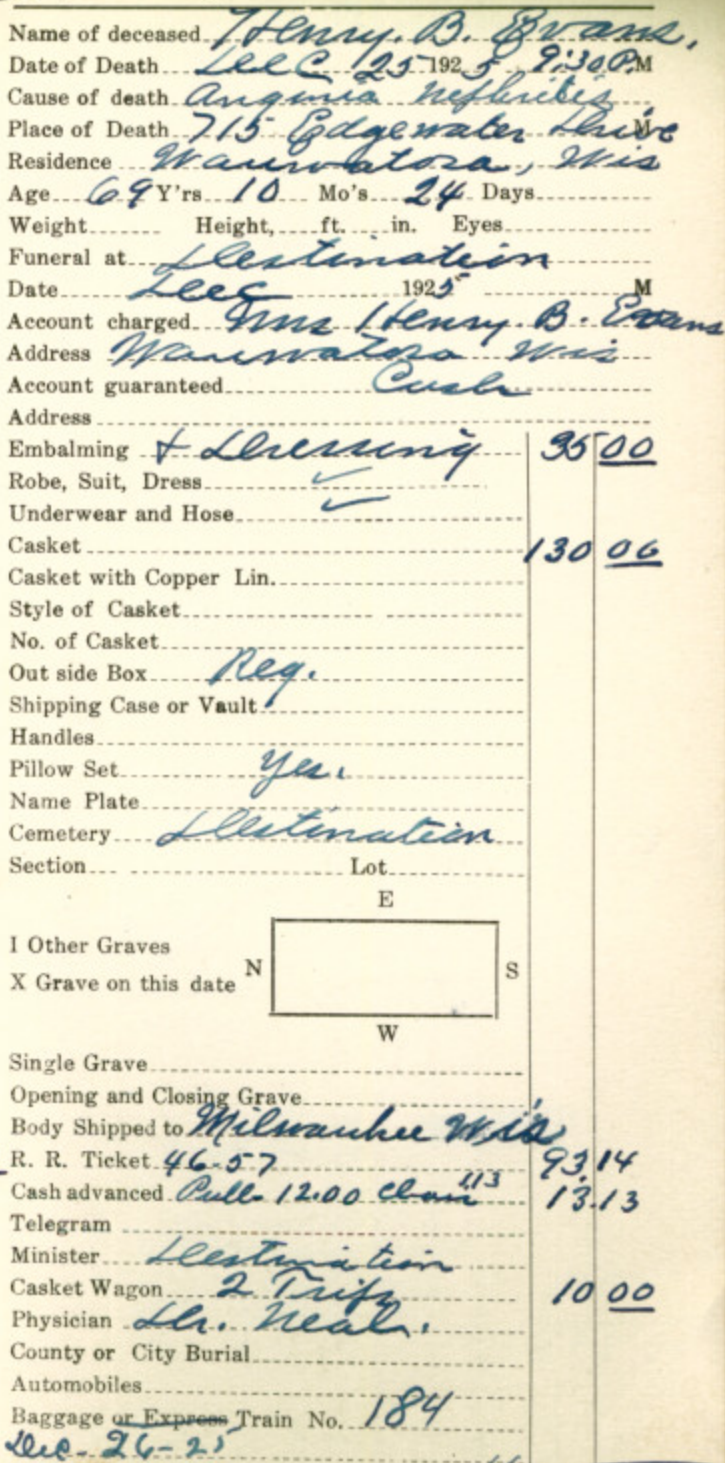 Name of deceased Henry. B. Evans,
Date of Death Dec 25 1925 9:30 P.M
Cause of death Anginia Nefhritis
Place of Death 715 Edgewater Drive M
Residence Wauwatosa, Wis
Age 69 Y'rs 10 Mo's 24 Days
Weight Height, ft. in. Eyes
Funeral at Destination
Date Dec 1925 M
Account charged Mrs Henry B. Evans
Address Wauwatosa Wis
Account guaranteed Cash
Address
Embalming + Dressing 35 00
Robe, Suit, Dress ✓
Underwear and Hose ✓
Casket 130 00
Casket with Copper Lin.
Style of Casket
No. of Casket
Out side Box Reg.
Shipping Case or Vault
Handles
Pillow Set Yes.
Name Plate
Cemetery Destination
Section Lot
E
I Other Graves
N S
X Grave on this date
W
Single Grave
Opening and Closing Grave
Body Shipped to Milwaukee Wis
R. R. Ticket 46-57 93.14
Cash advanced Pull- 12.00 1.13 13.13
Telegram
Minister Destination
Casket Wagon 2 Trips 10 00
Physician Dr. Neal.
County or City Burial
Automobiles
Baggage or Express Train No. 184
Dec- 26-25